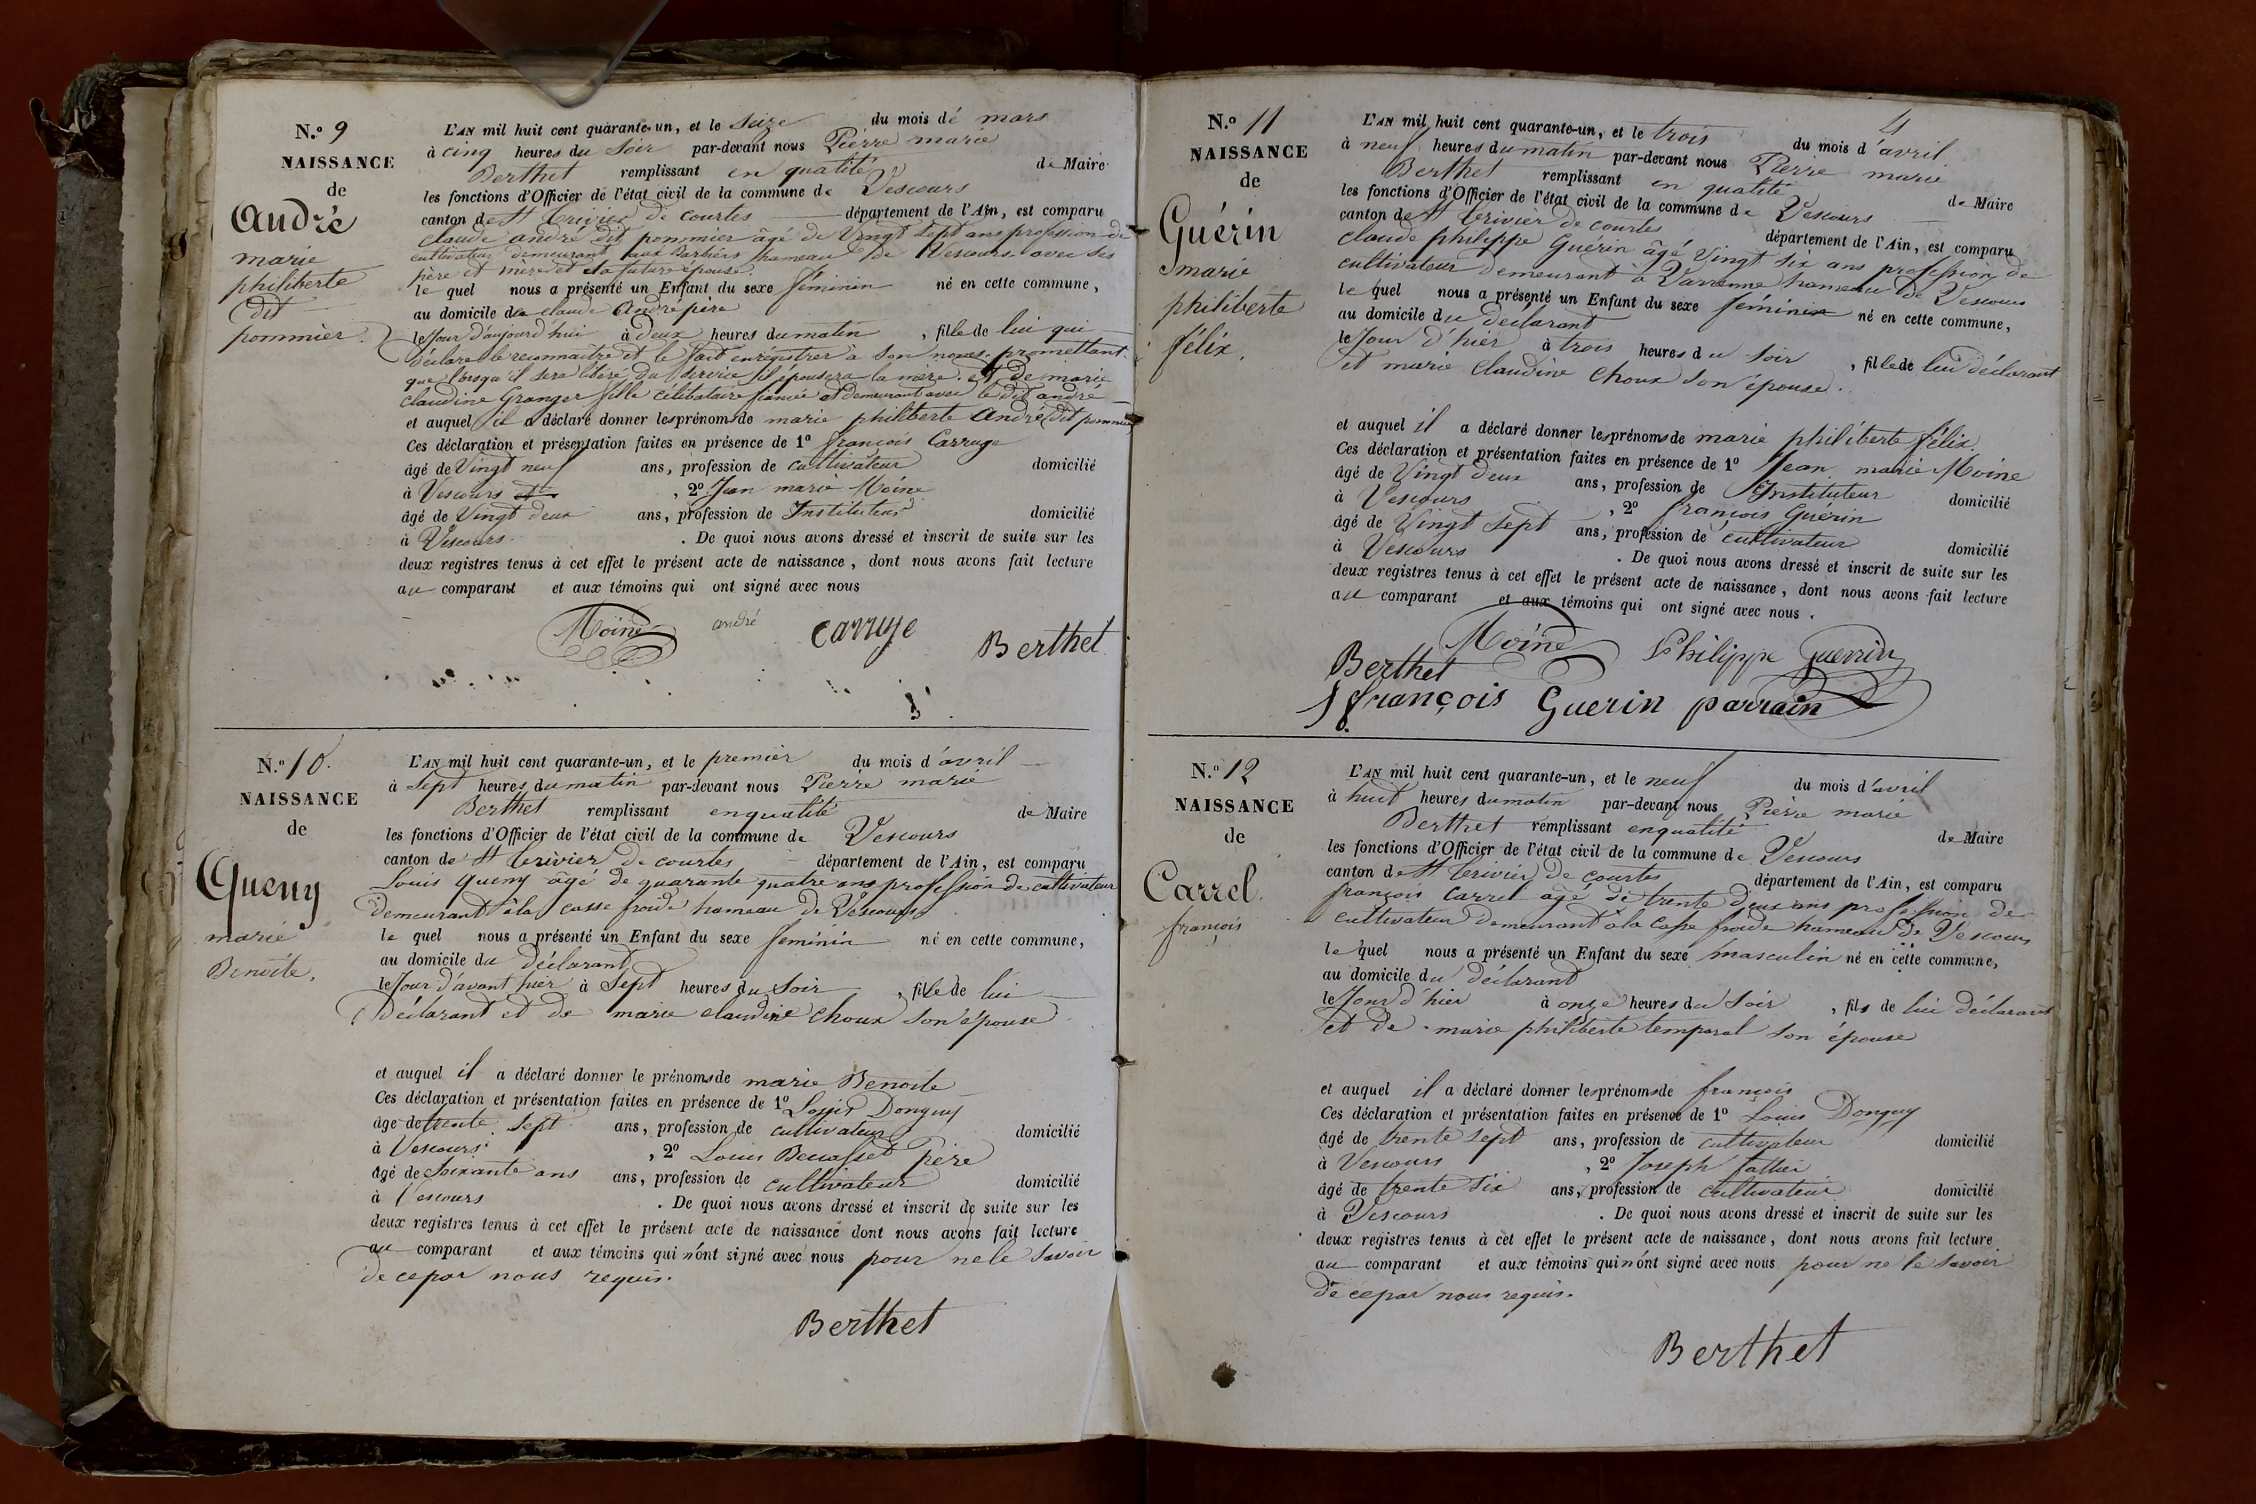 N.º 9
NAISSANCE
de
André
marie
philiberte
dit
pommier.
L'AN mil huit cent quarante-un, et le seize du mois de mars
à cinq heures du soir par-devant nous Pierre marie
Berthet remplissant en qualité de Maire
les fonctions d'Officier de l'état civil de la commune de Vescours
canton de St trivier de courtes département de l'Ain, est comparu
claude andré dit pommier âgé de vingt sept ans profession de
cultivateur demeurant aux barbiers hameau de Vescours avec ses
père et mère et sa future épouse.
le quel nous a présenté un Enfant du sexe féminin né en cette commune,
au domicile de claude André père
le Jour d'aujourd'hui à deux heures du matin, fille de lui qui
déclare le reconnaitre et le fait enregistrer à son nom promettant
que lorsqu'il sera libéré du service il épousera la mère. et de marie
claudine Granger fille célibataire fiancée et demeurant avec le dit andré
et auquel il a déclaré donner les prénoms de marie philiberte André dit pommier
Ces déclaration et présentation faites en présence de 1º françois Carruge
âgé de Vingt neuf ans, profession de cultivateur domicilié
à Vescours, 2º Jean marie Moine
âgé de Vingt deux ans, profession de Instituteur domicilié
à Vescours. De quoi nous avons dressé et inscrit de suite sur les
deux registres tenus à cet effet le présent acte de naissance, dont nous avons fait lecture
au comparant et aux témoins qui ont signé avec nous
Moine andré carruge Berthet
N.º 10.
NAISSANCE
de
Queny
marie
Benoite.
L'AN mil huit cent quarante-un, et le premier du mois d'avril
à sept heures du matin par-devant nous Pierre marie
Berthet remplissant en qualité de Maire
les fonctions d'Officier de l'état civil de la commune de Vescours
canton de St trivier de courtes département de l'Ain, est comparu
Louis Queny âgé de quarante quatre ans profession de cultivateur
demeurant à la casse froide hameau de Vescours
le quel nous a présenté un Enfant du sexe féminin né en cette commune,
au domicile du déclarant
le Jour d'avant hier à sept heures du soir, fille de lui
déclarant et de marie claudine choux son épouse
et auquel il a déclaré donner le prénoms de marie Benoite
Ces déclaration et présentation faites en présence de 1º Louis Donguy
âge de trente sept ans, profession de cultivateur domicilié
à Vescours, 2º Louis Becasset Père
âgé de soixante ans ans, profession de cultivateur domicilié
à Vescours. De quoi nous avons dressé et inscrit de suite sur les
deux registres tenus à cet effet le présent acte de naissance dont nous avons fait lecture
au comparant et aux témoins qui n'ont signé avec nous pour ne le savoir
de ce par nous requis.
Berthet
4
N.º 11
NAISSANCE
de
Guérin
marie
philiberte
félix.
L'AN mil huit cent quarante-un, et le trois du mois d'avril
à neuf heures du matin par-devant nous Pierre marie
Berthet remplissant en qualité de Maire
les fonctions d'Officier de l'état civil de la commune de Vescours
canton de St trivier de courtes département de l'Ain, est comparu
claude philippe Guérin âgé vingt six ans profession de
cultivateur demeurant à Varenne hameau de Vescours
le quel nous a présenté un Enfant du sexe féminin né en cette commune,
au domicile du déclarant
le Jour d'hier à trois heures du soir, fille de lui déclarant
et marie claudine choux son épouse.
et auquel il a déclaré donner les prénoms de marie philiberte félix
Ces déclaration et présentation faites en présence de 1º Jean marie Moine
âgé de Vingt deux ans, profession de Instituteur domicilié
à Vescours, 2º françois Guérin
âgé de Vingt sept ans, profession de cultivateur domicilié
à Vescours. De quoi nous avons dressé et inscrit de suite sur les
deux registres tenus à cet effet le présent acte de naissance, dont nous avons fait lecture
au comparant et aux témoins qui ont signé avec nous.
Moine Philippe Guerrin
Berthet
françois Guerin parrain
N.º 12
NAISSANCE
de
Carrel.
françois
L'AN mil huit cent quarante-un, et le neuf du mois d'avril
à huit heures du matin par-devant nous Pierre marie
Berthet remplissant en qualité de Maire
les fonctions d'Officier de l'état civil de la commune de Vescours
canton de St trivier de courtes département de l'Ain, est comparu
françois carrel âgé de trente deux ans profession de
cultivateur demeurant à la casse froide hameau de Vescours
le quel nous a présenté un Enfant du sexe masculin né en cette commune,
au domicile du déclarant
le Jour d'hier à onze heures du soir, fils de lui déclarant
et de marie philiberte temporal son épouse
et auquel il a déclaré donner les prénoms de françois
Ces déclaration et présentation faites en présence de 1º Louis Donguy
âgé de trente sept ans, profession de cultivateur domicilié
à Vescours, 2º Joseph
âgé de trente six ans, profession de cultivateur domicilié
à Vescours. De quoi nous avons dressé et inscrit de suite sur les
deux registres tenus à cet effet le présent acte de naissance, dont nous avons fait lecture
au comparant et aux témoins qui n'ont signé avec nous pour ne le savoir
de ce par nous requis.
Berthet